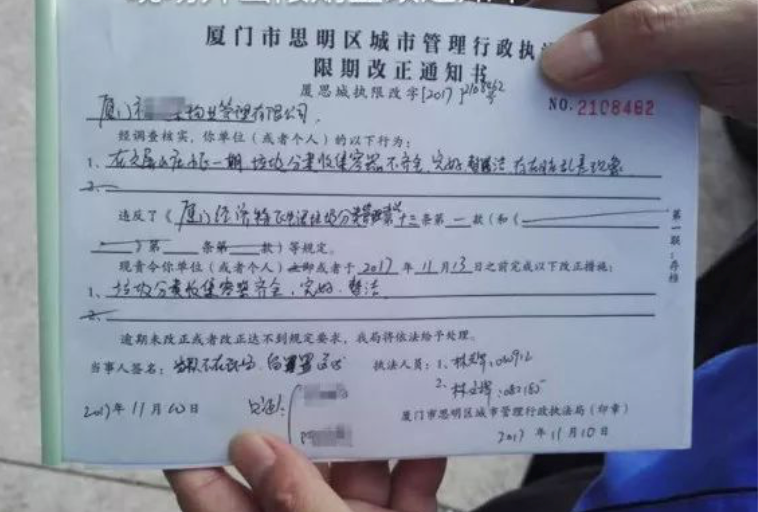 厦门市思明区城市管理行政执法
限期改正通知书
厦思城执限改字[2017] 2108462号
NO. 2108462
厦门市 物业管理有限公司:
经调查核实,你单位(或者个人)的以下行为:
1、在 一期,垃圾分类收集容器不齐全、完好、整洁,存在脏乱差现象
2、
违反了《厦门经济特区生活垃圾分类管理办法》十三条第一款(和《
》第 条第 款)等规定。
现责令你单位(或者个人)立即或者于2017年11月13日之前完成以下改正措施:
1、垃圾分类收集容器齐全、完好、整洁
2、
逾期未改正或者改正达不到规定要求,我局将依法给予处理。
当事人签名: 不在现场,留置送达
执法人员:1、
2、
2017年11月10日
见证:
厦门市思明区城市管理行政执法局(印章)
2017年11月10日
第一联:存档